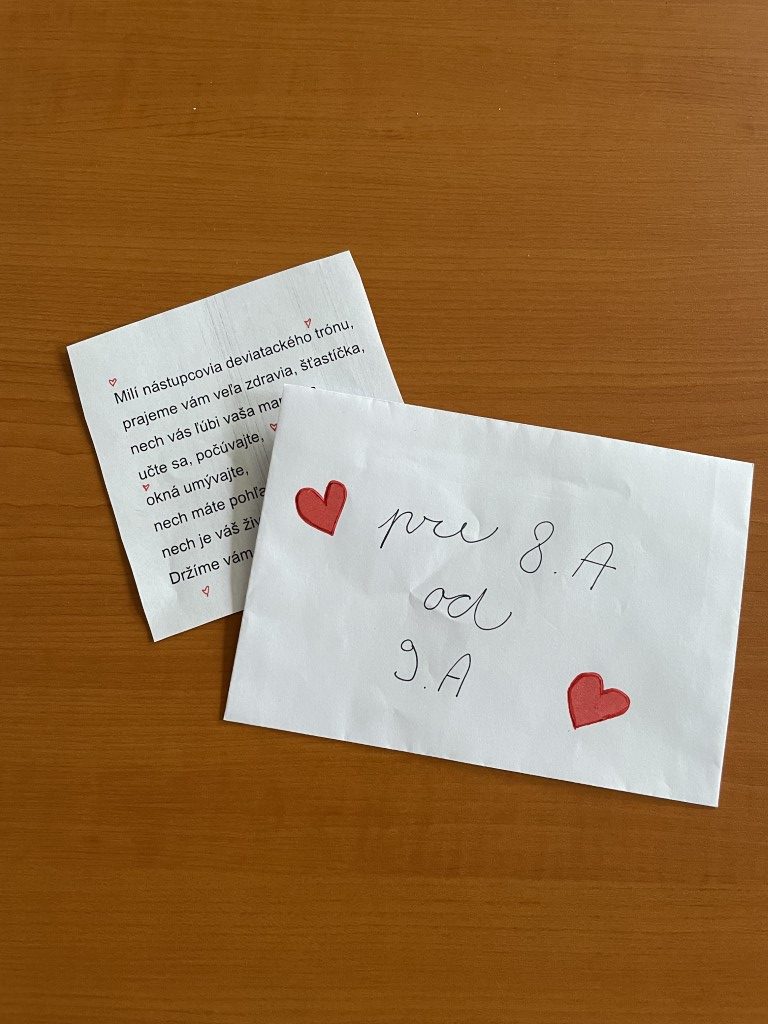 Milí nástupcovia deviatackého trónu,
prajeme vám veľa zdravia, šťastíčka,
nech vás ľúbi vaša
učte sa, počúvajte,
okná umývajte,
nech máte
nech je váš
Držíme vám
pre 8.A
od
9.A